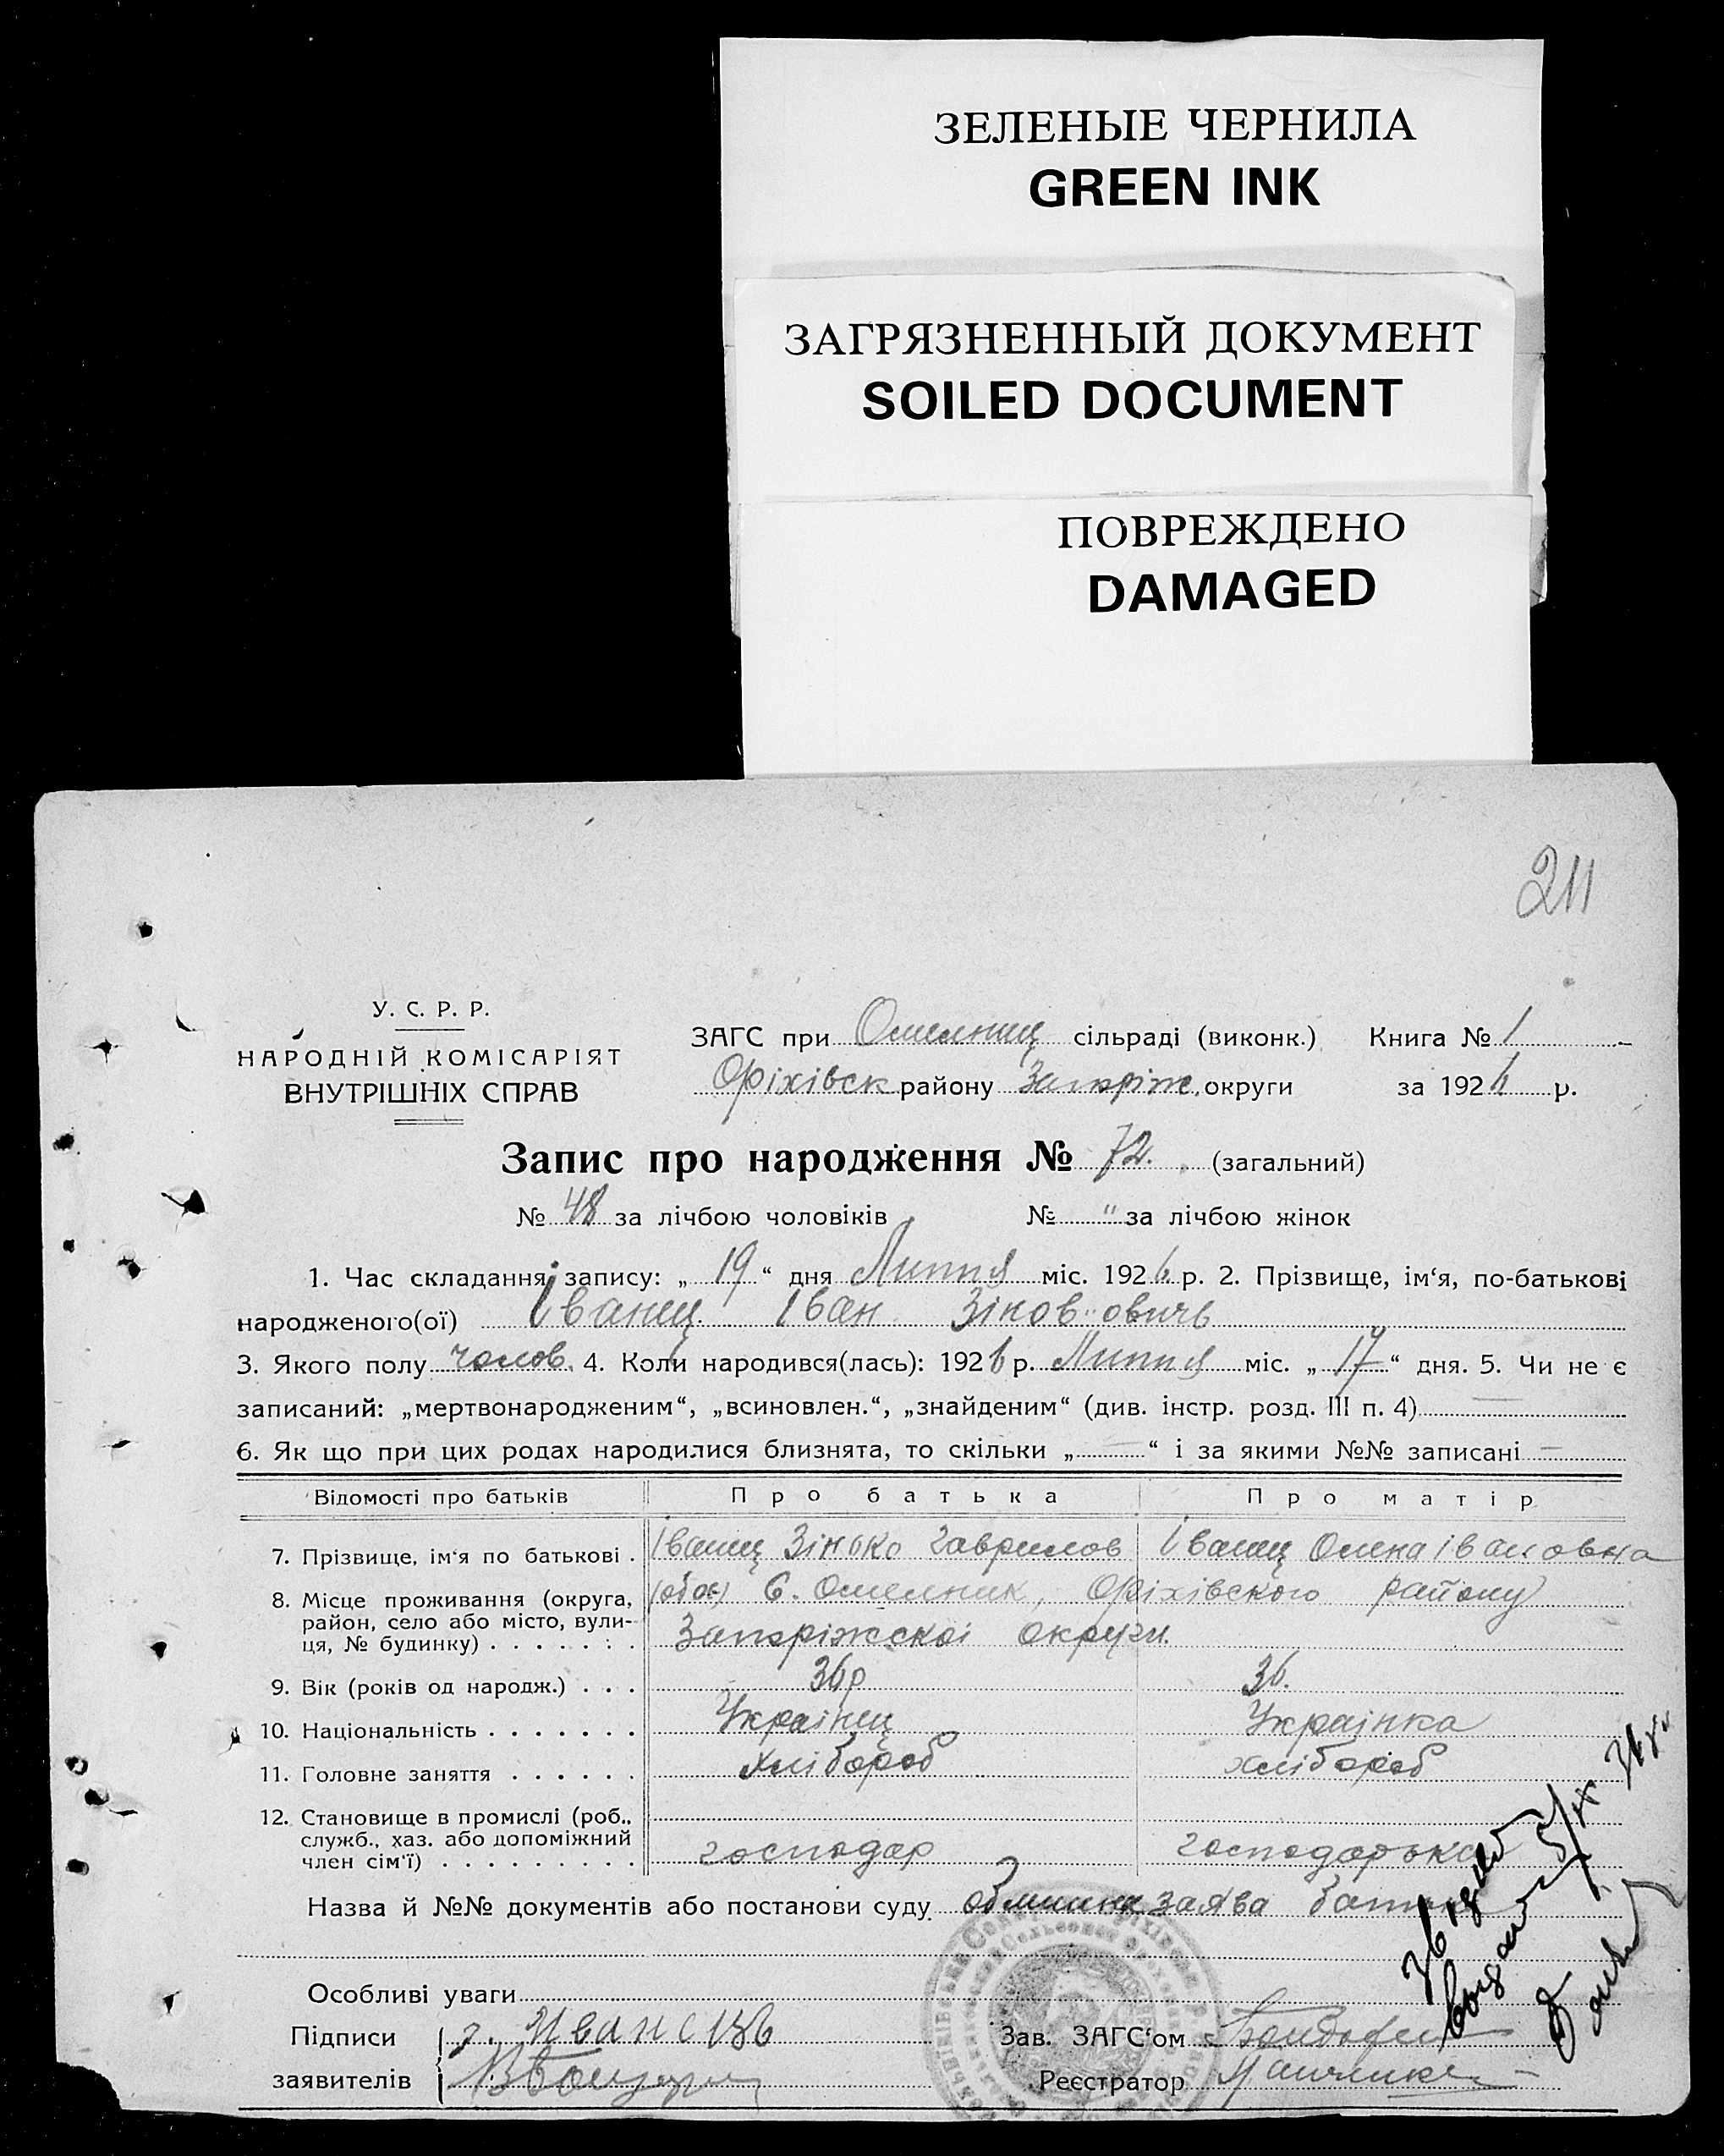 ЗЕЛЕНЫЕ ЧЕРНИЛА
GREEN INK
ЗАГРЯЗНЕННЫЙ ДОКУМЕНТ
SOILED DOCUMENT
ПОВРЕЖДЕНО
DAMAGED
211
У. С. Р. Р.
НАРОДНІЙ КОМІСАРІЯТ
ВНУТРІШНІХ СПРАВ
ЗАГС при Омелниц сільраді (виконк.) Книга № 1
Оріхівск району Запоріж. округи за 1926 р.
Запис про народження № 72. (загальний)
№ 48 за лічбою чоловіків № " за лічбою жінок
1. Час складання запису: „ 19 “ дня Липня міс. 1926 р. 2. Прізвище, ім‘я, по-батькові
народженого(ої) Іванец Іван Зіновович
3. Якого полу чолов. 4. Коли народився(лась): 1926 р. Липня міс. „ 17 “ дня. 5. Чи не є
записаний: „мертвонародженим“, „всиновлен.“, „знайденим“ (див. інстр. розд. III п. 4)
6. Як що при цих родах народилися близнята, то скільки „ — “ і за якими №№ записані —
Відомості про батьків Про батька Про матір
7. Прізвище, ім‘я по батькові . Іванец Зінько Гаврилов Іванец Олена Івановна
8. Місце проживання (округа, район, село або місто, вулиця, № будинку) (обоє) С. Омелник, Оріхівского району
Запоріжскоі округи.
9. Вік (років од народж.) . . . 36р 36.
10. Національність . . . . . . . Украінец Украінка
11. Головне заняття . . . . . . хлібороб хлібороб
12. Становище в промислі (роб., служб., хаз. або допоміжний член сім‘ї) . . . . . . . . . господар господарька
Назва й №№ документів або постанови суду заява батька
Особливі уваги
Підписи Зав. ЗАГС‘ом
заявителів Реєстратор